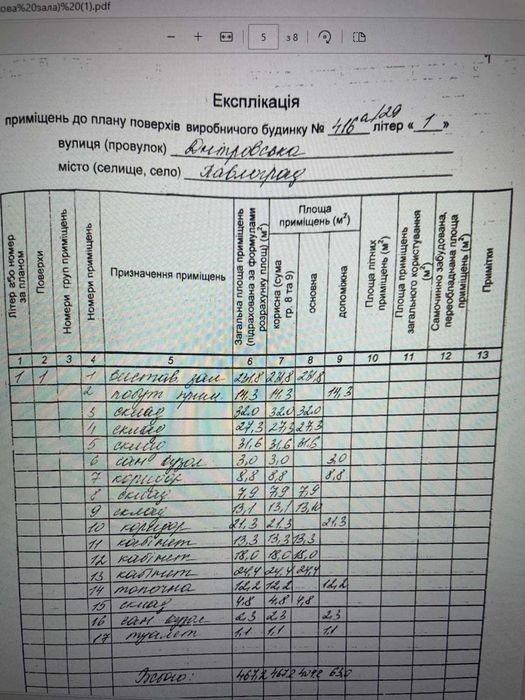 ова%20зала)%20(1).pdf
5 з 8
Експлікація
приміщень до плану поверхів виробничого будинку № 416 а/29 літер « 1 »
вулиця (провулок) Дніпровська
місто (селище, село) Павлоград
Літер або номер за планом
Поверхи
Номери груп приміщень
Номери приміщень
Призначення приміщень
Загальна площа приміщень (підрахована за формулами розрахунку площ) (м²)
Площа приміщень (м²)
корисна (сума гр. 8 та 9)
основна
допоміжна
Площа літніх приміщень (м²)
Площа приміщень загального користування (м²)
Самочинно забудована, переобладнана площа приміщень (м²)
Примітки
1 2 3 4 5 6 7 8 9 10 11 12 13
1 1 1 вистав. зал 231,8 231,8 231,8
2 побут. прим. 14,3 14,3 14,3
3 склад 32,0 32,0 32,0
4 склад 27,3 27,3 27,3
5 склад 31,6 31,6 31,6
6 сан вузол 3,0 3,0 3,0
7 коридор 8,8 8,8 8,8
8 склад 7,9 7,9 7,9
9 склад 13,1 13,1 13,10
10 коридор 21,3 21,3 21,3
11 кабінет 13,3 13,3 13,3
12 кабінет 18,0 18,0 18,0
13 кабінет 24,4 24,4 24,4
14 топочна 12,2 12,2 12,2
15 склад 4,8 4,8 4,8
16 сан вузол 2,3 2,3 2,3
17 туалет 1,1 1,1 1,1
Всього: 467,2 467,2 404,2 63,0